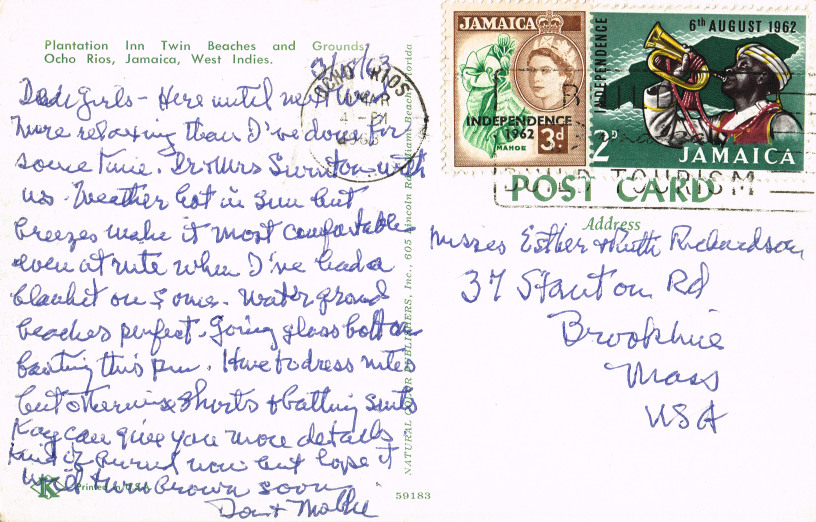 Plantation Inn Twin Beaches and Grounds
Ocho Rios, Jamaica, West Indies.
OCHO RIOS
Dear Girls - Here until next week
More relaxing than I've done for
some time. Dr & Mrs with
us. Weather hot in sun but
breezes make it most comfortable
even at nite when I've had a
blanket on some. Water grand
beaches perfect. Going glass bottom
boating this pm. Have to dress nites
but otherwise shorts & bathing suits
Kay can give you more details
Kind of burned now but hope it
will turn brown soon
Dot & Mollie
Printed in U.S.A.
K
NATURAL COLOR PUBLISHERS, Inc., 605 Lincoln Road, Miami Beach, Florida
59183
JAMAICA
INDEPENDENCE
1962
3d
MAHOE
INDEPENDENCE
6th AUGUST 1962
2D
JAMAICA
BUILD
BUILD TOURISM
POST CARD
Address
Misses Esther & Ruth Richardson
37 Stanton Rd
Brookline
Mass
USA